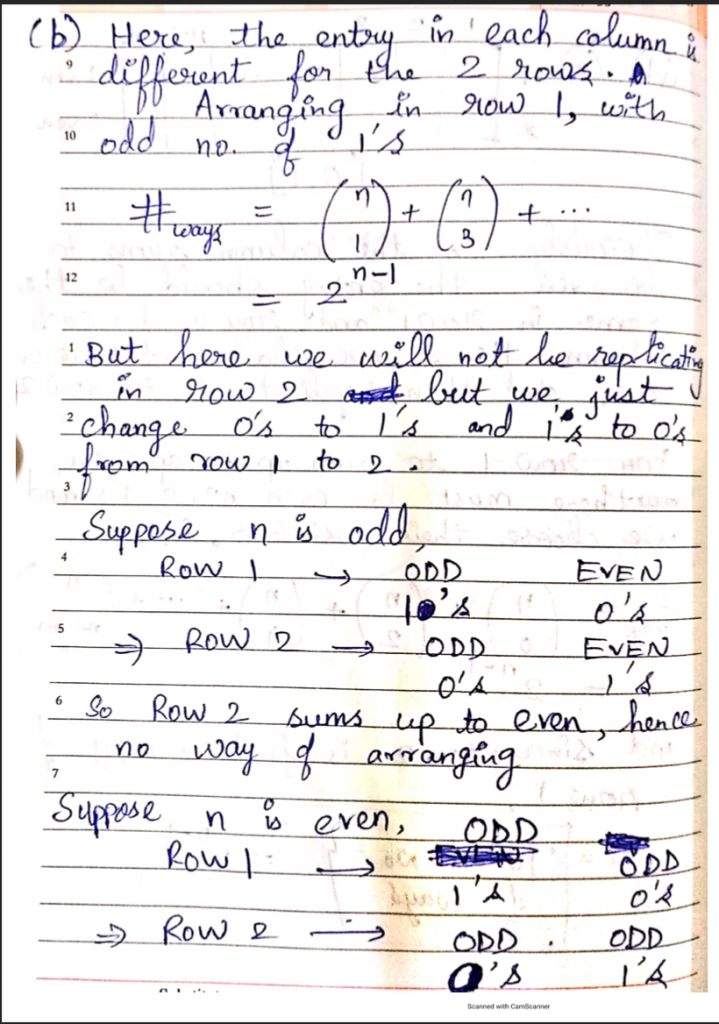 (b) Here, the entry in each column is
9 different for the 2 rows.
Arranging in row 1, with
10 odd no. of 1's
11 #ways = (n 1) + (n 3) + ...
12 = 2^{n-1}
1 But here we will not be replicating
in row 2 but we just
2 change 0's to 1's and 1's to 0's
from row 1 to 2.
3
Suppose n is odd,
4 Row 1 → ODD EVEN
1's 0's
5 ⇒ Row 2 → ODD EVEN
0's 1's
6 So Row 2 sums up to even, hence
no way of arranging
7
Suppose n is even, ODD
Row 1 → ODD
1's 0's
⇒ Row 2 → ODD . ODD
0's 1's
Scanned with CamScanner